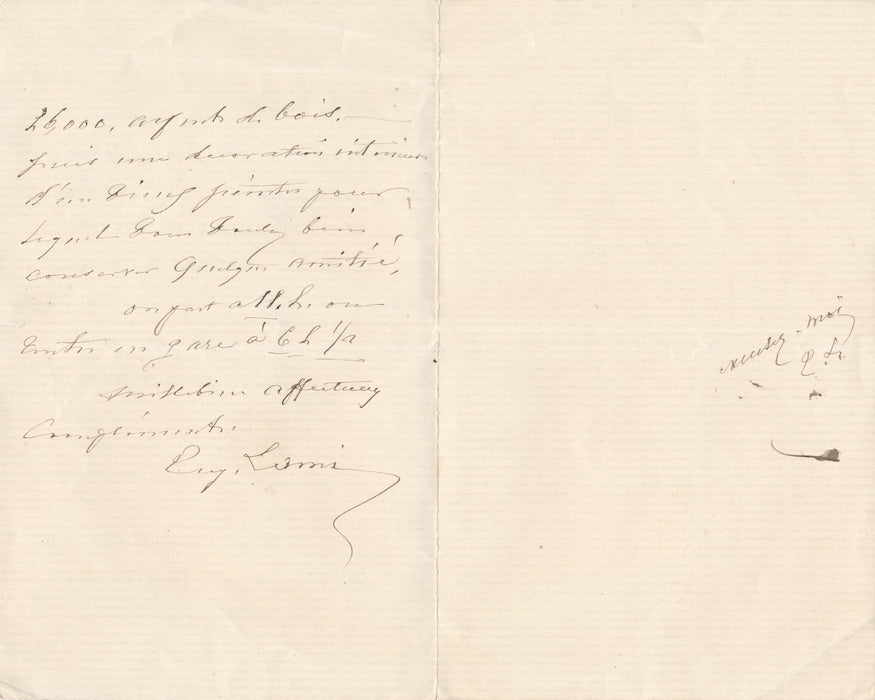 26,000, arpents de bois. —
puis une decoration intérieure
d'un vieux peintre pour
lequel vous voulez bien
conserver quelque amitié,
on part a 11. h. on
rentre en gare à 6 h 1/2
mille bien affectueux
Compliments.
Eug. Lami
excusez-moi